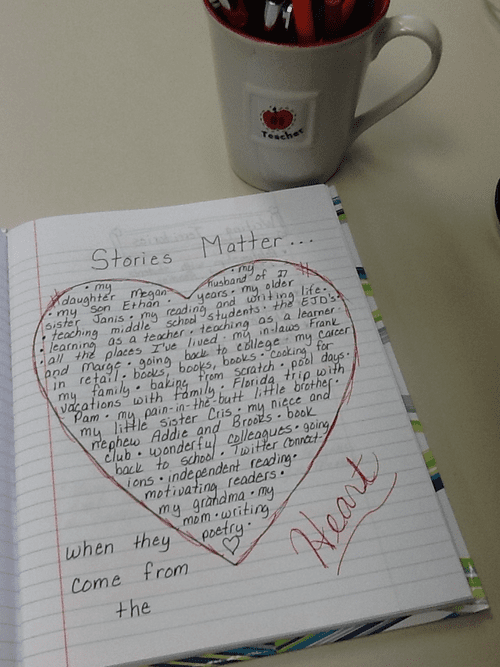 Teacher
Stories Matter...
• my • my
daughter Megan husband of 27
• my son Ethan • years • my older
sister Janis • my reading and writing life •
• teaching middle school students • the EJD's •
learning as a teacher • teaching as a learner •
• all the places I've lived • my in-laws Frank
and Marge • going back to college • my career
in retail • books, books, books • cooking for
my family • baking from scratch • pool days •
vacations with family • Florida trip with
Pam • my pain-in-the-butt little brother •
my little sister Cris • my niece and
nephew Addie and Brooks • book
club • wonderful colleagues • going
back to school • Twitter connect-
ions • independent reading •
motivating readers •
my grandma • my
mom • writing
poetry •
when they
come from
the
Heart